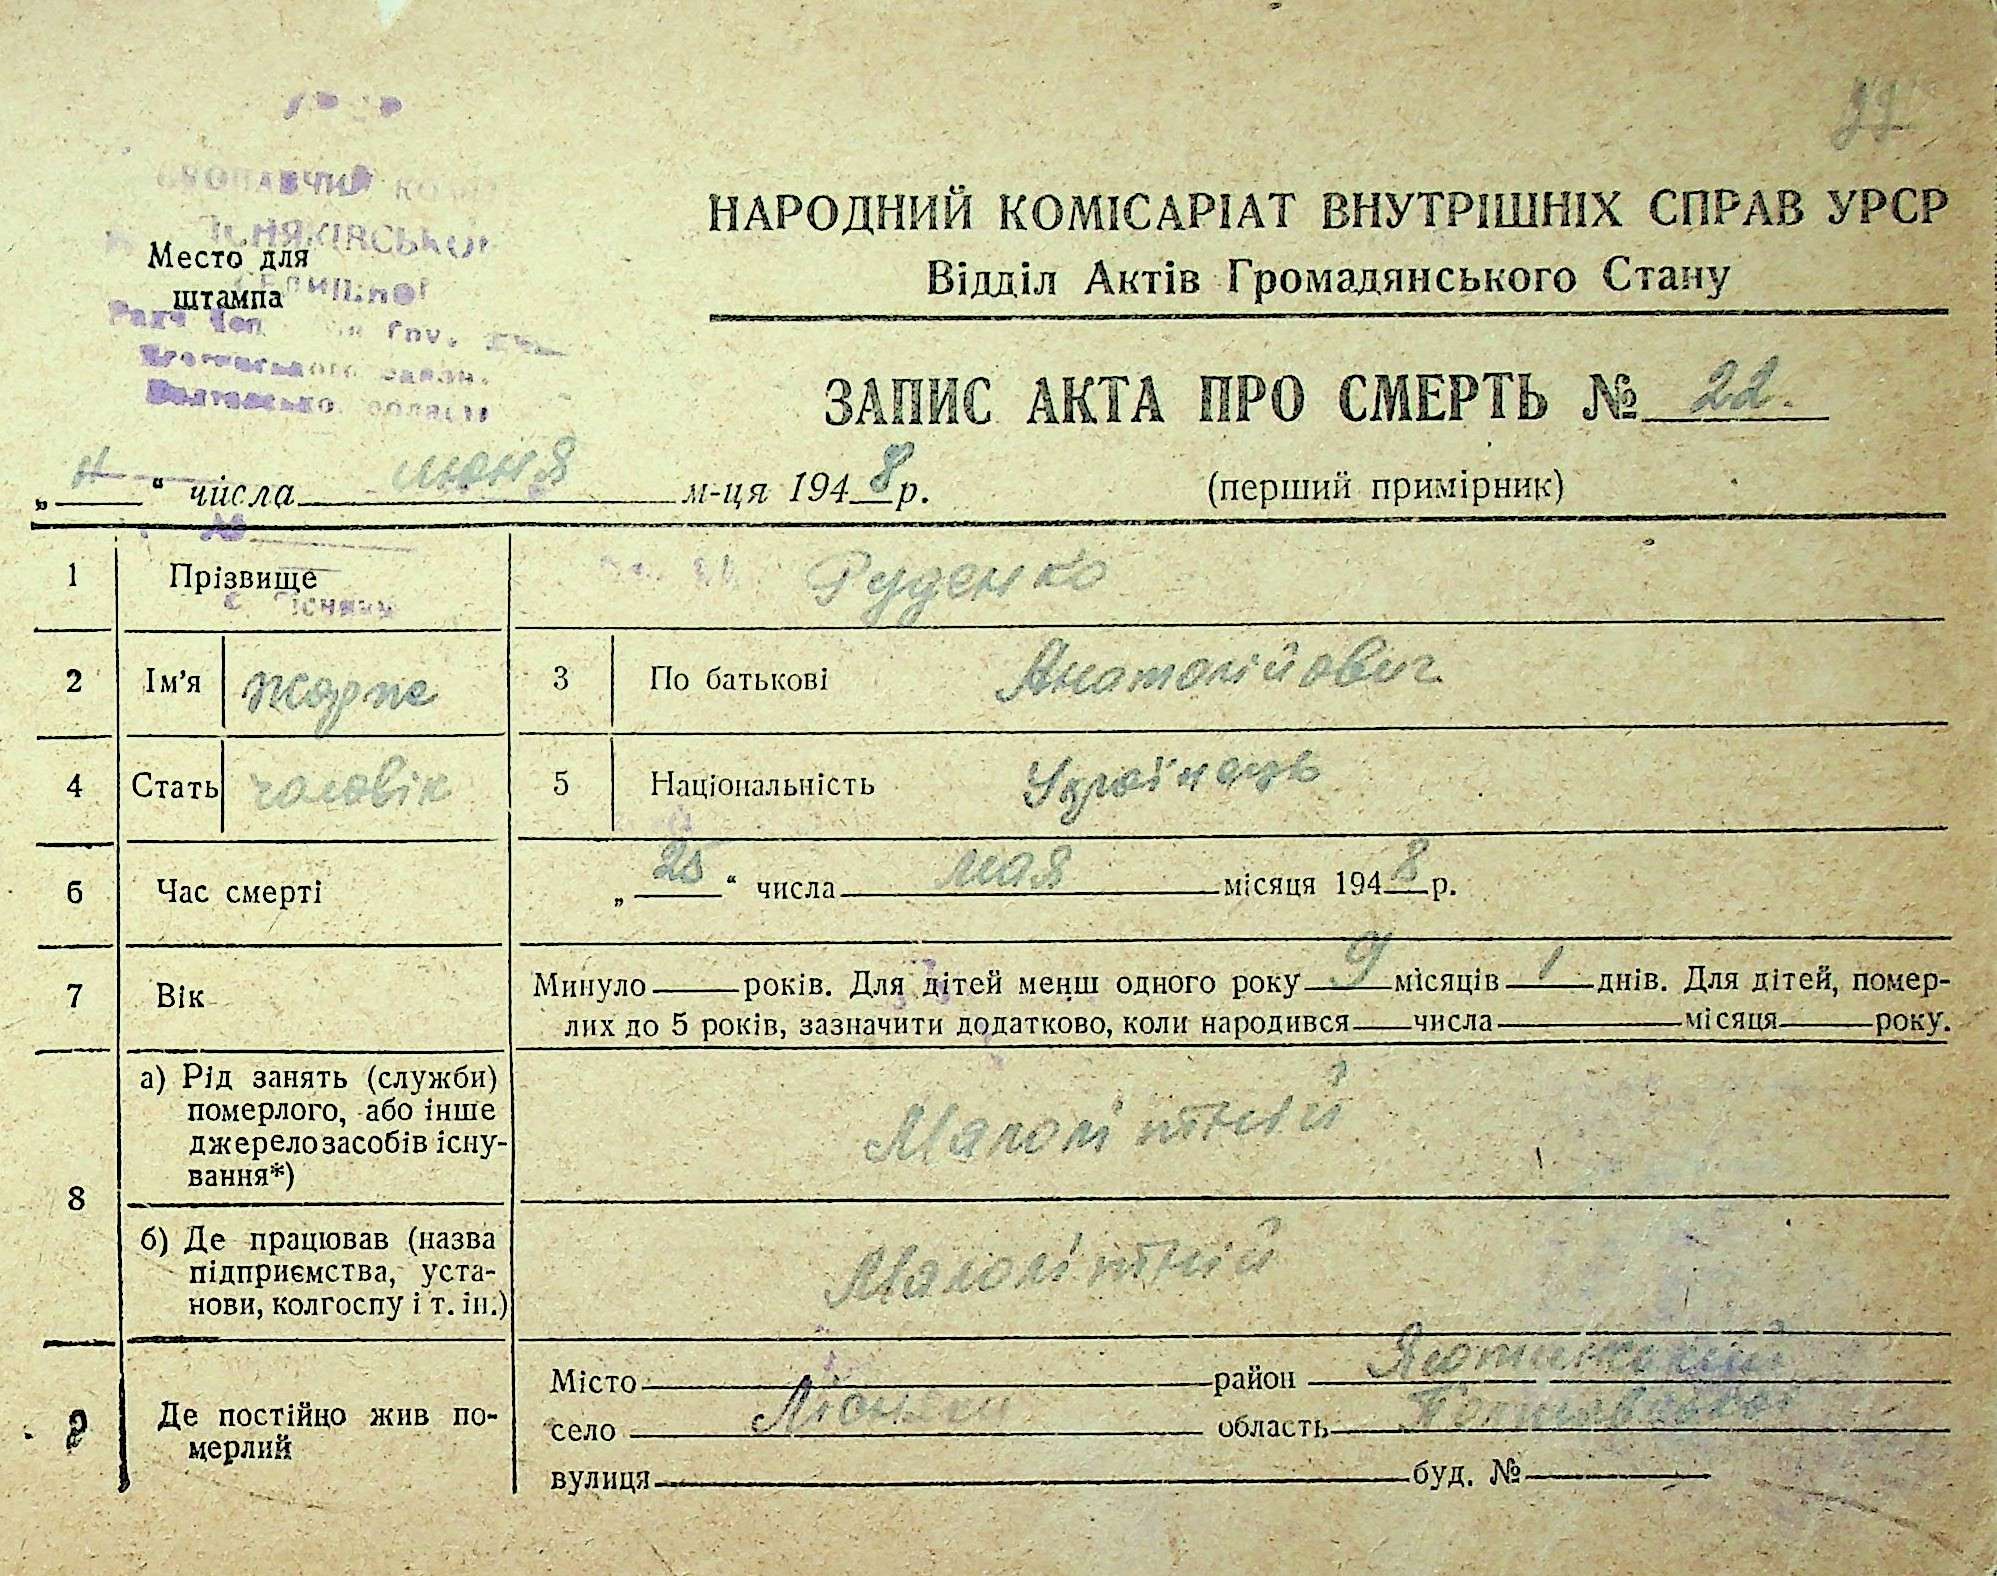 22
Место для
штампа
НАРОДНИЙ КОМІСАРІАТ ВНУТРІШНІХ СПРАВ УРСР
Відділ Актів Громадянського Стану
ЗАПИС АКТА ПРО СМЕРТЬ № 22.
„ “ числа июня м-ця 1948 р.
(перший примірник)
1 Прізвище Руденко
с. Лісняки
2 Ім'я Жорже 3 По батькові Анатолійович
4 Стать чоловік 5 Національність Українець
6 Час смерті „25“ числа мая місяця 1948 р.
7 Вік Минуло років. Для дітей менш одного року 9 місяців 1 днів. Для дітей, помер-
лих до 5 років, зазначити додатково, коли народився числа місяця року.
8 а) Рід занять (служби)
померлого, або інше
джерело засобів існу-
вання*)
Малолітній
б) Де працював (назва
підприємства, уста-
нови, колгоспу і т. ін.)
Малолітній
9 Де постійно жив по-
мерлий
Місто район Яготинський
село Лісняки область Полтавської
вулиця буд. №